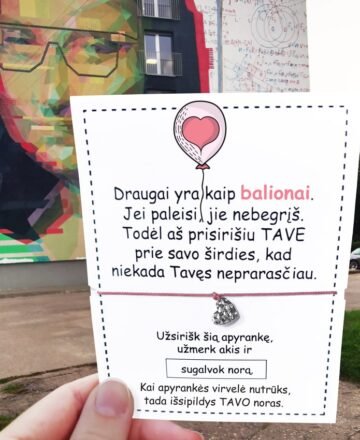 Draugai yra kaip balionai.
Jei paleisi, jie nebegrįš.
Todėl aš prisirišiu TAVE
prie savo širdies, kad
niekada Tavęs neprarasčiau.
Užsirišk šią apyrankę,
užmerk akis ir
sugalvok norą,
Kai apyrankės virvelė nutrūks,
tada išsipildys TAVO noras.